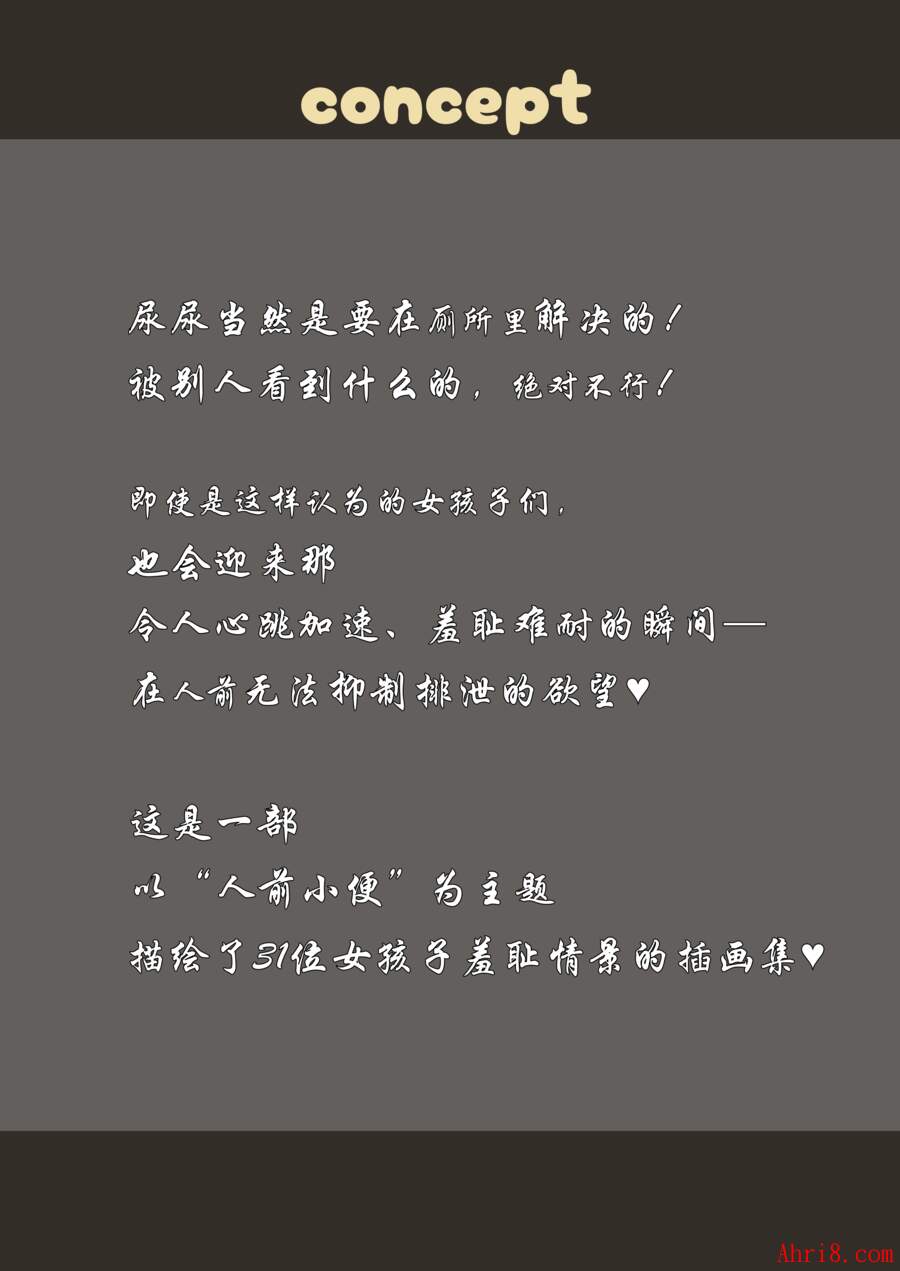 concept
尿尿当然是要在厕所里解决的！
被别人看到什么的，绝对不行！
即使是这样认为的女孩子们，
也会迎来那
令人心跳加速、羞耻难耐的瞬间—
在人前无法抑制排泄的欲望♥
这是一部
以“人前小便”为主题
描绘了31位女孩子羞耻情景的插画集♥
Ahri8.com